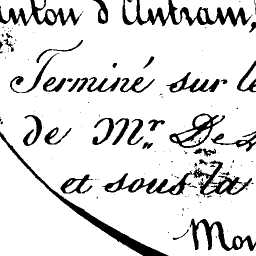 anton d'Antrain,
Terminé sur le
de Mr. De
et sous la
Mon